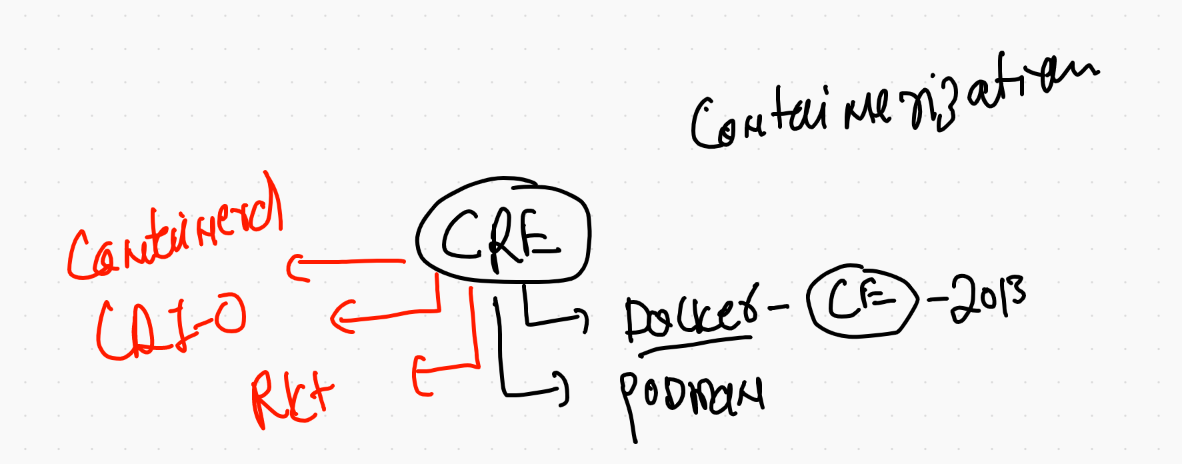 Containerization
CRE
Containerd
CRI-O
Rkt
Docker - CE - 2013
PODMAN